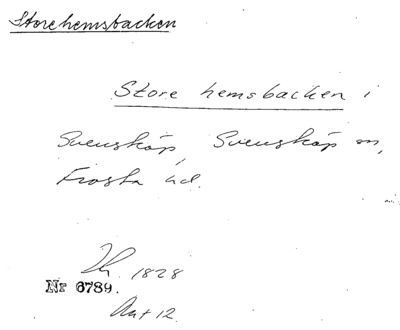 Storehemsbacken
Store hemsbacken i
Svensköp, Svensköp sn,
Frosta hd.
1828
Nr 6789.
Ant 12.